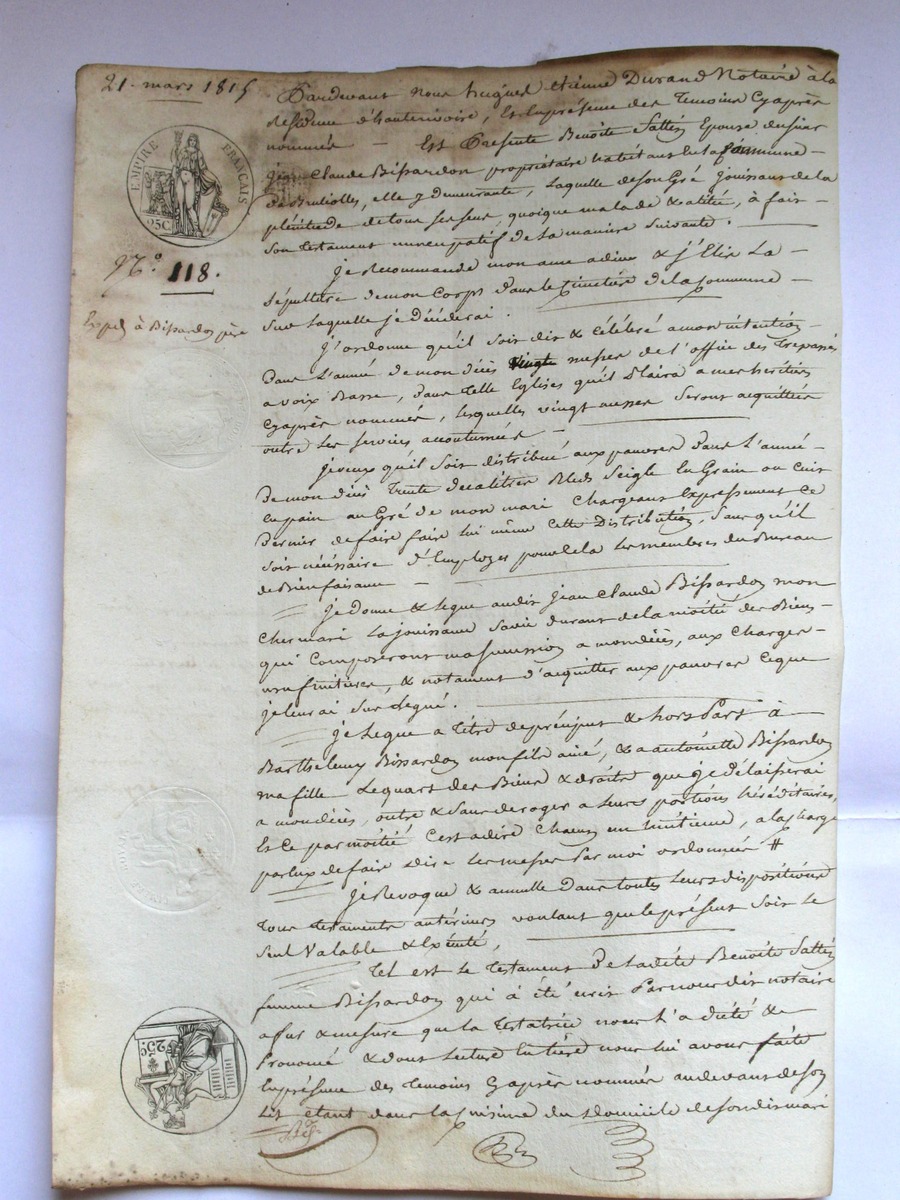 21. mars 1815
EMPIRE FRANÇAIS
25C
N.° 118.
Exped à Bissardon père
Pardevant Nous hugues etienne Durand Notaire à la
Residence d'hauterivoire, Et En presence des Temoins Cyaprès
nommés — Est Presente Benoîte Sattin Epouse du sieur
jean Claude Bissardon propriétaire habitant en la Commune —
de Brullioles, elle y demeurante, Laquelle de son Gré jouissant de la
plénitude de tous ses sens, quoique malade & alitée, à fait —
son testament nuncupatif de la maniere Suivante.
je Recommande mon ame a dieu & j'Elis La —
sépulture de mon Corps dans le Cimetière de la Commune —
sur laquelle je décéderai.
j'ordonne qu'il soit dis & célébré a mon intention —
Dans L'année de mon décès vingt messes de l'office des Trepassés
a voix Basse, dans telle Eglises qu'il Plaira a mes heritiers
Cyaprès nommés, lesquelles vingt messes seront acquittées
outre les services accoutumés —
je veux qu'il soit distribué aux pauvres dans L'année —
De mon décès Trente decalitres Bled Seigle En Grain ou Cuit
En pain au Gré de mon mari Chargeant Expressement Ce
Dernier de faire faire lui même Cette Distribution, Sans qu'il
soit nécessaire d'Employer pour Cela Les membres du Bureau
de Bienfaisance —
je Donne & Legue audit jean Claude Bissardon mon
Cher mari La jouissance Sa vie durant de la moitié des Biens —
qui Composeront ma Succession a mon décès, aux Charges —
usufruitieres, & notament d'acquitter aux pauvres Ceque
je leur ai sus Legué.
je Legue a titre de préciput & hors Part à —
Barthelemy Bissardon mon fils ainé, & a antoinette Bissardon
ma fille Le quart des Biens & droits que je délaisserai
a mon décès, outre & Sans deroger a Leurs portions héréditaires,
Et Ce par moitié C'est adire Chacun un huitieme, a la Charge
par Eux de faire dire Les messes Par moi ordonnées #
je Revoque & annulle dans toutes Leurs dispositions
Tous testaments antérieurs voulant que le présent Soit Le
Seul Valable & Exécuté,
Tel est Le Testament De Ladite Benoîte Sattin
femme Bissardon qui à été écrit Par nous dit notaire
a fur & mesure que La Testatrice nous L'a dicté &
Prononcé & dont Lecture Entière nous lui avons faite
En présence des Temoins Cyaprès nommés au devant de son
Lit étant dans la Cuisine du Domicile de son dit mari
25C